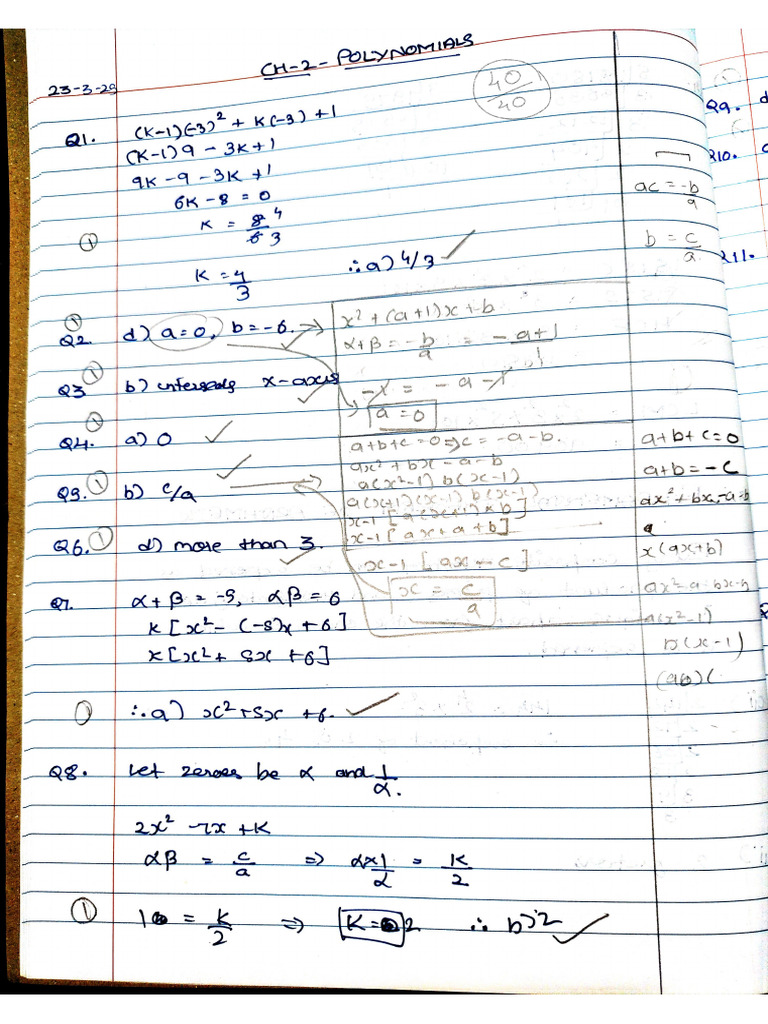 CH-2- POLYNOMIALS
23-3-23
40/40
Q1. (K-1)(-3)² + K(-3) +1
(K-1)9 - 3K+1
9K-9-3K+1
6K-8=0
K = 8/6 4/3
①
K = 4/3 ∴a) 4/3 ✓
① Q2 d) a=0, b=-6. ✓
x² + (a+1)x + b
α+β = -b/a = -a+1/1
-1 = -a-1
a=0
Q3 ① b) intersects x-axis ✓
① Q4. a) 0 ✓
a+b+c=0 => c = -a-b.
ax²+bx-a-b
a(x²-1) b(x-1)
a(x+1)(x-1) b(x-1)
x-1 [a(x+1)+b]
x-1 [ax+a+b]
x-1 [ax-c]
x = c/a
Q5. ① b) c/a ✓
Q6. ① d) more than 3. ✓
Q7. α+β=-5, αβ=6
K[x²-(-5)x+6]
x[x²+5x+6]
① ∴a) x²+5x+6. ✓
Q8. Let zeroes be α and 1/α.
2x² -7x +K
αβ = c/a => α×1/α = K/2
① 1 = K/2 => K=2 ∴ b) 2 ✓
ac = -b/a
b = c/a
a+b+c=0
a+b=-c
ax²+bx-a-b
x(ax+b)
ax²-a bx-b
a(x²-1)
b(x-1)
Q9.
Q10.
Q11.